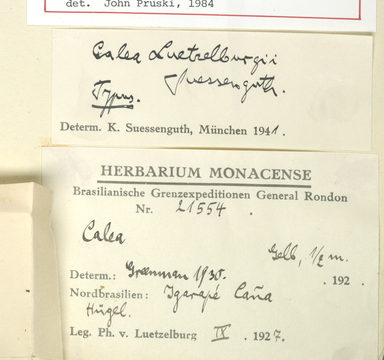 det. John Pruski, 1984
Calea Luetzelburgii
Suessenguth.
Typus.
Determ. K. Suessenguth, München 1941.
HERBARIUM MONACENSE
Brasilianische Grenzexpeditionen General Rondon
Nr. 21554.
Calea
Gelb, 1/2 m.
Determ.: 1930. . 192 .
Nordbrasilien: Igarapé Caña
Hügel.
Leg. Ph. v. Luetzelburg IX . 1927.